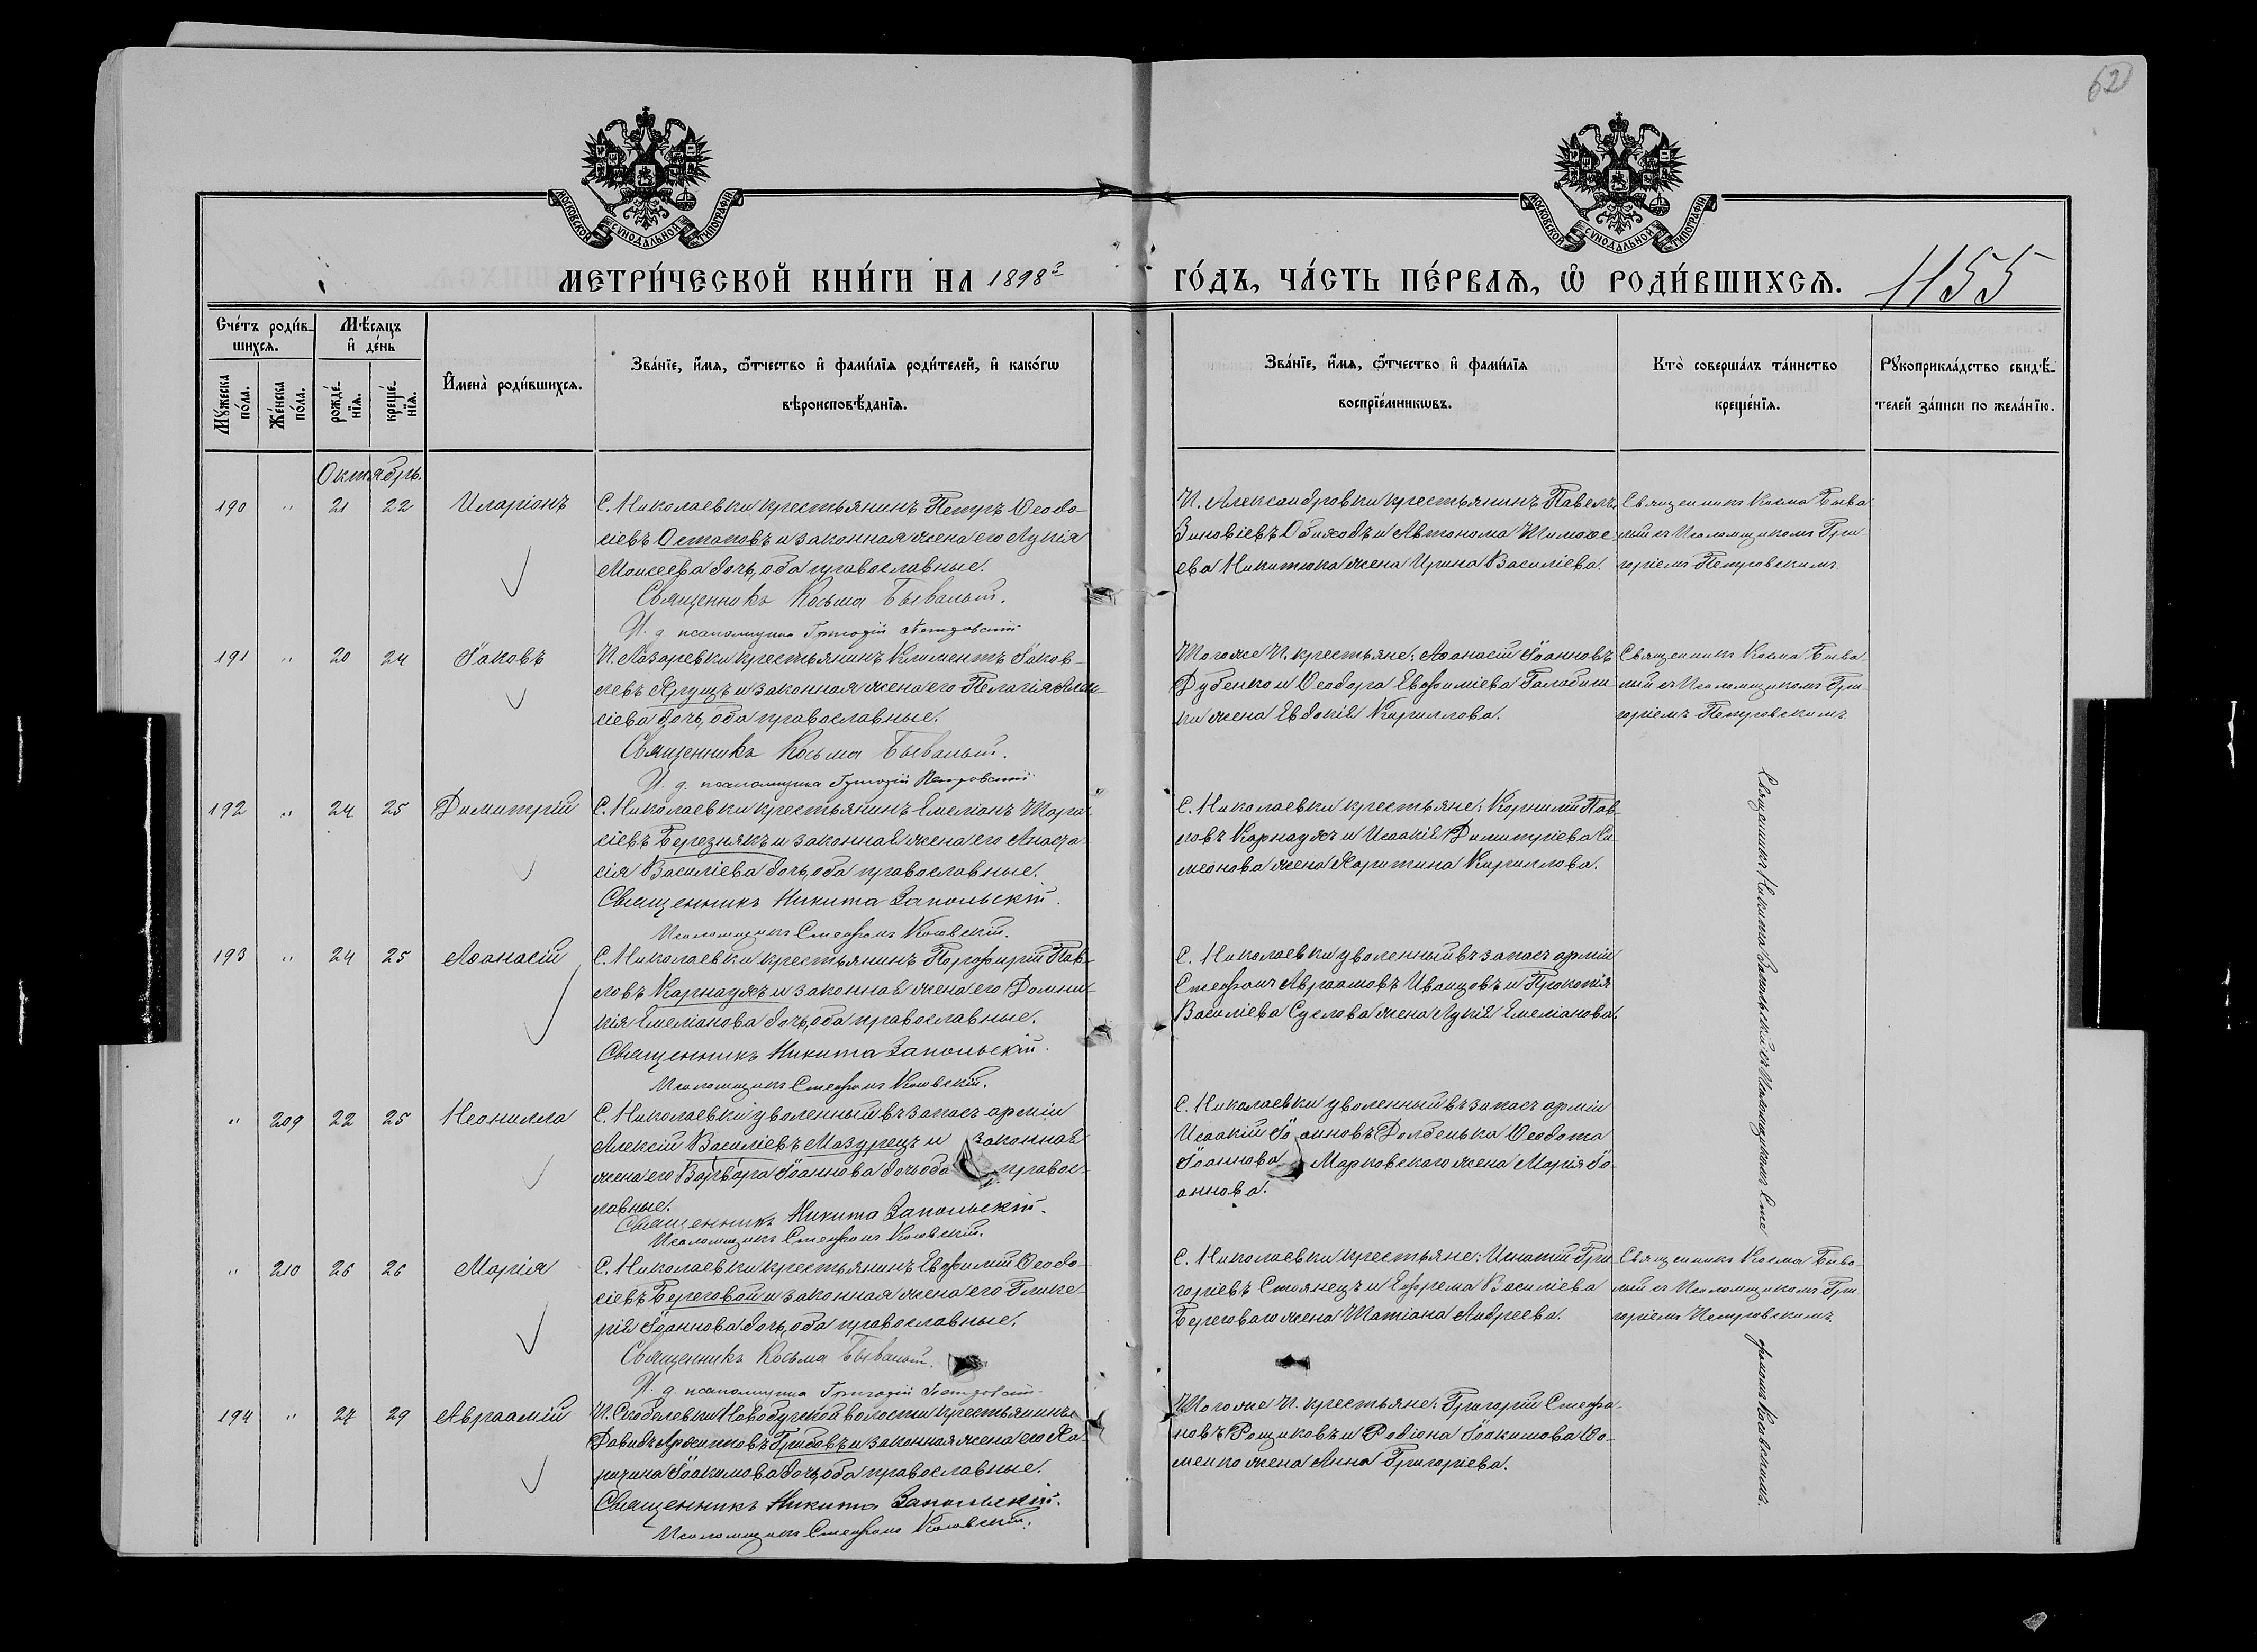 62
МОСКОВСКОЙ СУНОДАЛЬНОЙ ТИПОГРАФІИ
МОСКОВСКОЙ СУНОДАЛЬНОЙ ТИПОГРАФІИ
МЕТРИ́ЧЕСКОЙ КНИ́ГИ НА 1898
ГО́ДЪ, ЧА́СТЬ ПЕ́РВАѦ, Ѡ РОДИ́ВШИХСѦ.
1155
Сче́тъ роди́в-
шихсѧ.
Мѣ́сѧцъ
и҆ де́нь
Мꙋ́жеска
по́ла.
Же́нска
по́ла.
рожде́-
нїѧ.
креще́-
нїѧ.
И҆мена̀ роди́вшихсѧ.
Зва́нїе, и҆́мѧ, ѻ҆́тчество и҆ фами́лїѧ роди́телей, и҆ како́гѡ
вѣроисповѣ́данїѧ.
Зва́нїе, и҆́мѧ, ѻ҆́тчество и҆ фами́лїѧ
воспрїе́мникѡвъ.
Кто̀ соверша́лъ та́инство
креще́нїѧ.
Рꙋкоприкла́дство свидѣ́-
телей за́писи по жела́нїю.
Октябрь.
190 " 21 22 Иларіонъ
С. Николаевки крестьянинъ Петръ Ѳеодо-
сіевъ Остаповъ и законная жена его Лукія
Моисеева дочь, оба православные.
Священникъ Косьма Бывалый.
И. д. псаломщика Григорій Петровскій
П. Александровки крестьянинъ Павелъ
Зиновіевъ Обиходъ и Автонома Тимоѳе
ева Никитюка жена Ирина Василіева.
Священникъ Косма Быва
лый съ Псаломщикомъ Гри-
горіемъ Петровскимъ
191 " 20 24 Іаковъ
П. Лазаревки крестьянинъ Климентъ Іаков-
левъ Ярущъ и законная жена его Пелагія Алек
сіева дочь, оба православные.
Священникъ Косьма Бывалый.
И. д. псаломщика Григорій Петровскій
Того же П. крестьяне: Аѳанасій Іоанновъ
Дубенко и Ѳеодора Евфиміева
жена Евдокія Кириллова.
Священникъ Косма Быва
лый съ Псаломщикомъ Гри-
горіемъ Петровскимъ
192 " 24 25 Димитрій
С. Николаевки крестьянинъ Емеліанъ Тара-
сіевъ Березнякъ и законная жена его Анаста-
сія Василіева дочь, оба православные.
Священникъ Никита Запольскій.
Псаломщикъ Стефанъ Косовскій.
С. Николаевки крестьяне: Корнилій Пав-
ловъ Карнаухъ и Исаакія Димитріева Си
меонова жена Харитина Кириллова.
193 " 24 25 Аѳанасій
С. Николаевки крестьянинъ Порфирій Пав-
ловъ Карнаухъ и законная жена его Домни-
кія Емеліанова дочь, оба православные.
Священникъ Никита Запольскій.
Псаломщикъ Стефанъ Косовскій.
С. Николаевки уволенный въ запасъ арміи
Стефанъ Авраамовъ Иванцовъ и Прокопія
Василіева Суслова жена Лукія Емеліанова.
" 209 22 25 Неонилла
С. Николаевки уволенный въ запасъ арміи
Алексій Василіевъ Мазурецъ и законная
жена его Варвара Іоаннова дочь оба правос-
лавные.
Священникъ Никита Запольскій.
Псаломщикъ Стефанъ Косовскій.
С. Николаевки уволенный въ запасъ арміи
Исаакій Іоанновъ Долбенька Ѳеодота
Іоаннова Марковскаго жена Марія Іо-
аннова.
Священникъ Никита Запольскій съ Псаломщикомъ Сте
фаномъ Косовскимъ.
" 210 26 26 Марія
С. Николаевки крестьянинъ Евфимій Ѳеодо-
сіевъ Береговой и законная жена его Глике
рія Іоаннова дочь, оба православные.
Священникъ Косьма Бывалый.
И. д. псаломщика Григорій Петровскій
С. Николаевки крестьяне: Игнатій Гри
горіевъ Стоянецъ и Ефрема Василіева
Береговаго жена Татіана Андреева.
Священникъ Косма Быва
лый съ Псаломщикомъ Гри
горіемъ Петровскимъ
194 " 27 29 Авраамій
П. Скобелевки Новобугской волости крестьянинъ
Давидъ Архиповъ Грибовъ и законная жена его Ха-
ритина Іоакимова дочь, оба православные.
Священникъ Никита Запольскій.
Псаломщикъ Стефанъ Косовскій.
Того же П. крестьяне: Григорій Стефа-
новъ Рощиковъ и Родіона Іоакимова Ѳо-
менко жена Анна Григоріева.